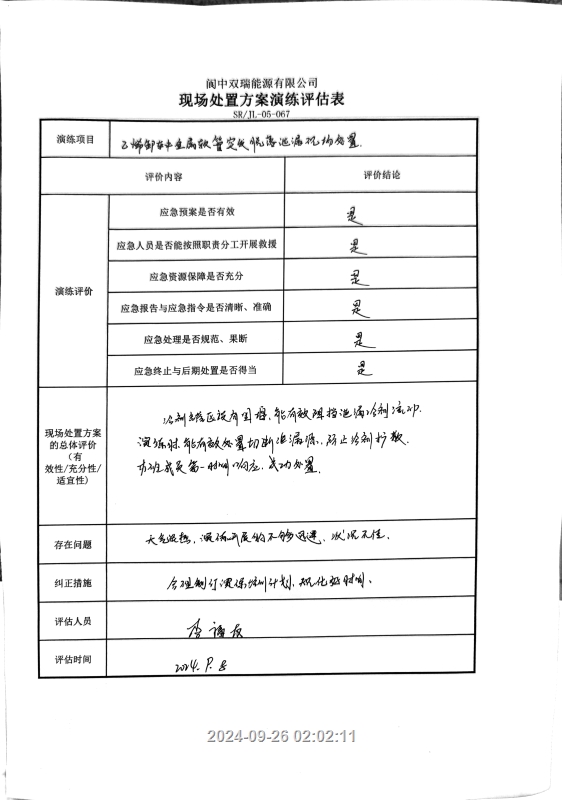 阆中双瑞能源有限公司
现场处置方案演练评估表
SR/JL-05-067
演练项目 乙烯卸车中金属软管突发脱落泄漏现场处置.
评价内容 评价结论
演练评价
应急预案是否有效 是
应急人员是否能按照职责分工开展救援 是
应急资源保障是否充分 是
应急报告与应急指令是否清晰、准确 是
应急处理是否规范、果断 是
应急终止与后期处置是否得当 是
现场处置方案
的总体评价
(有
效性/充分性/
适宜性)
冷剂罐区设有围堰,能有效阻挡泄漏冷剂流动.
演练时,能有效处置切断泄漏源,防止冷剂扩散.
当班成员第一时间响应,成功处置.
存在问题 天气湿热,演练开展的不够迅速、状况不佳.
纠正措施 合理制订演练培训计划,优化好时间.
评估人员 李
评估时间 2024.9.8
2024-09-26 02:02:11